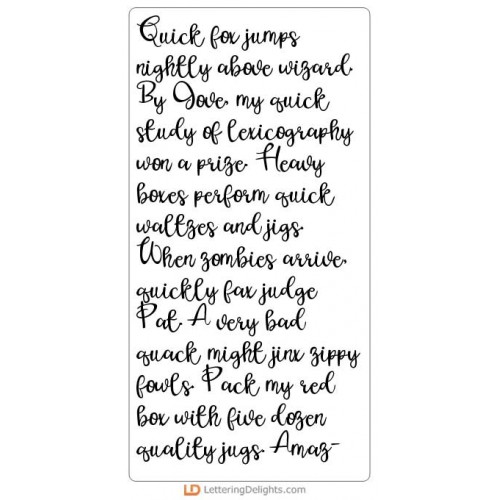 Quick fox jumps
nightly above wizard.
By Jove, my quick
study of lexicography
won a prize. Heavy
boxes perform quick
waltzes and jigs.
When zombies arrive,
quickly fax judge
Pat. A very bad
quack might jinx zippy
fowls. Pack my red
box with five dozen
quality jugs. Amaz-
LD LetteringDelights.com